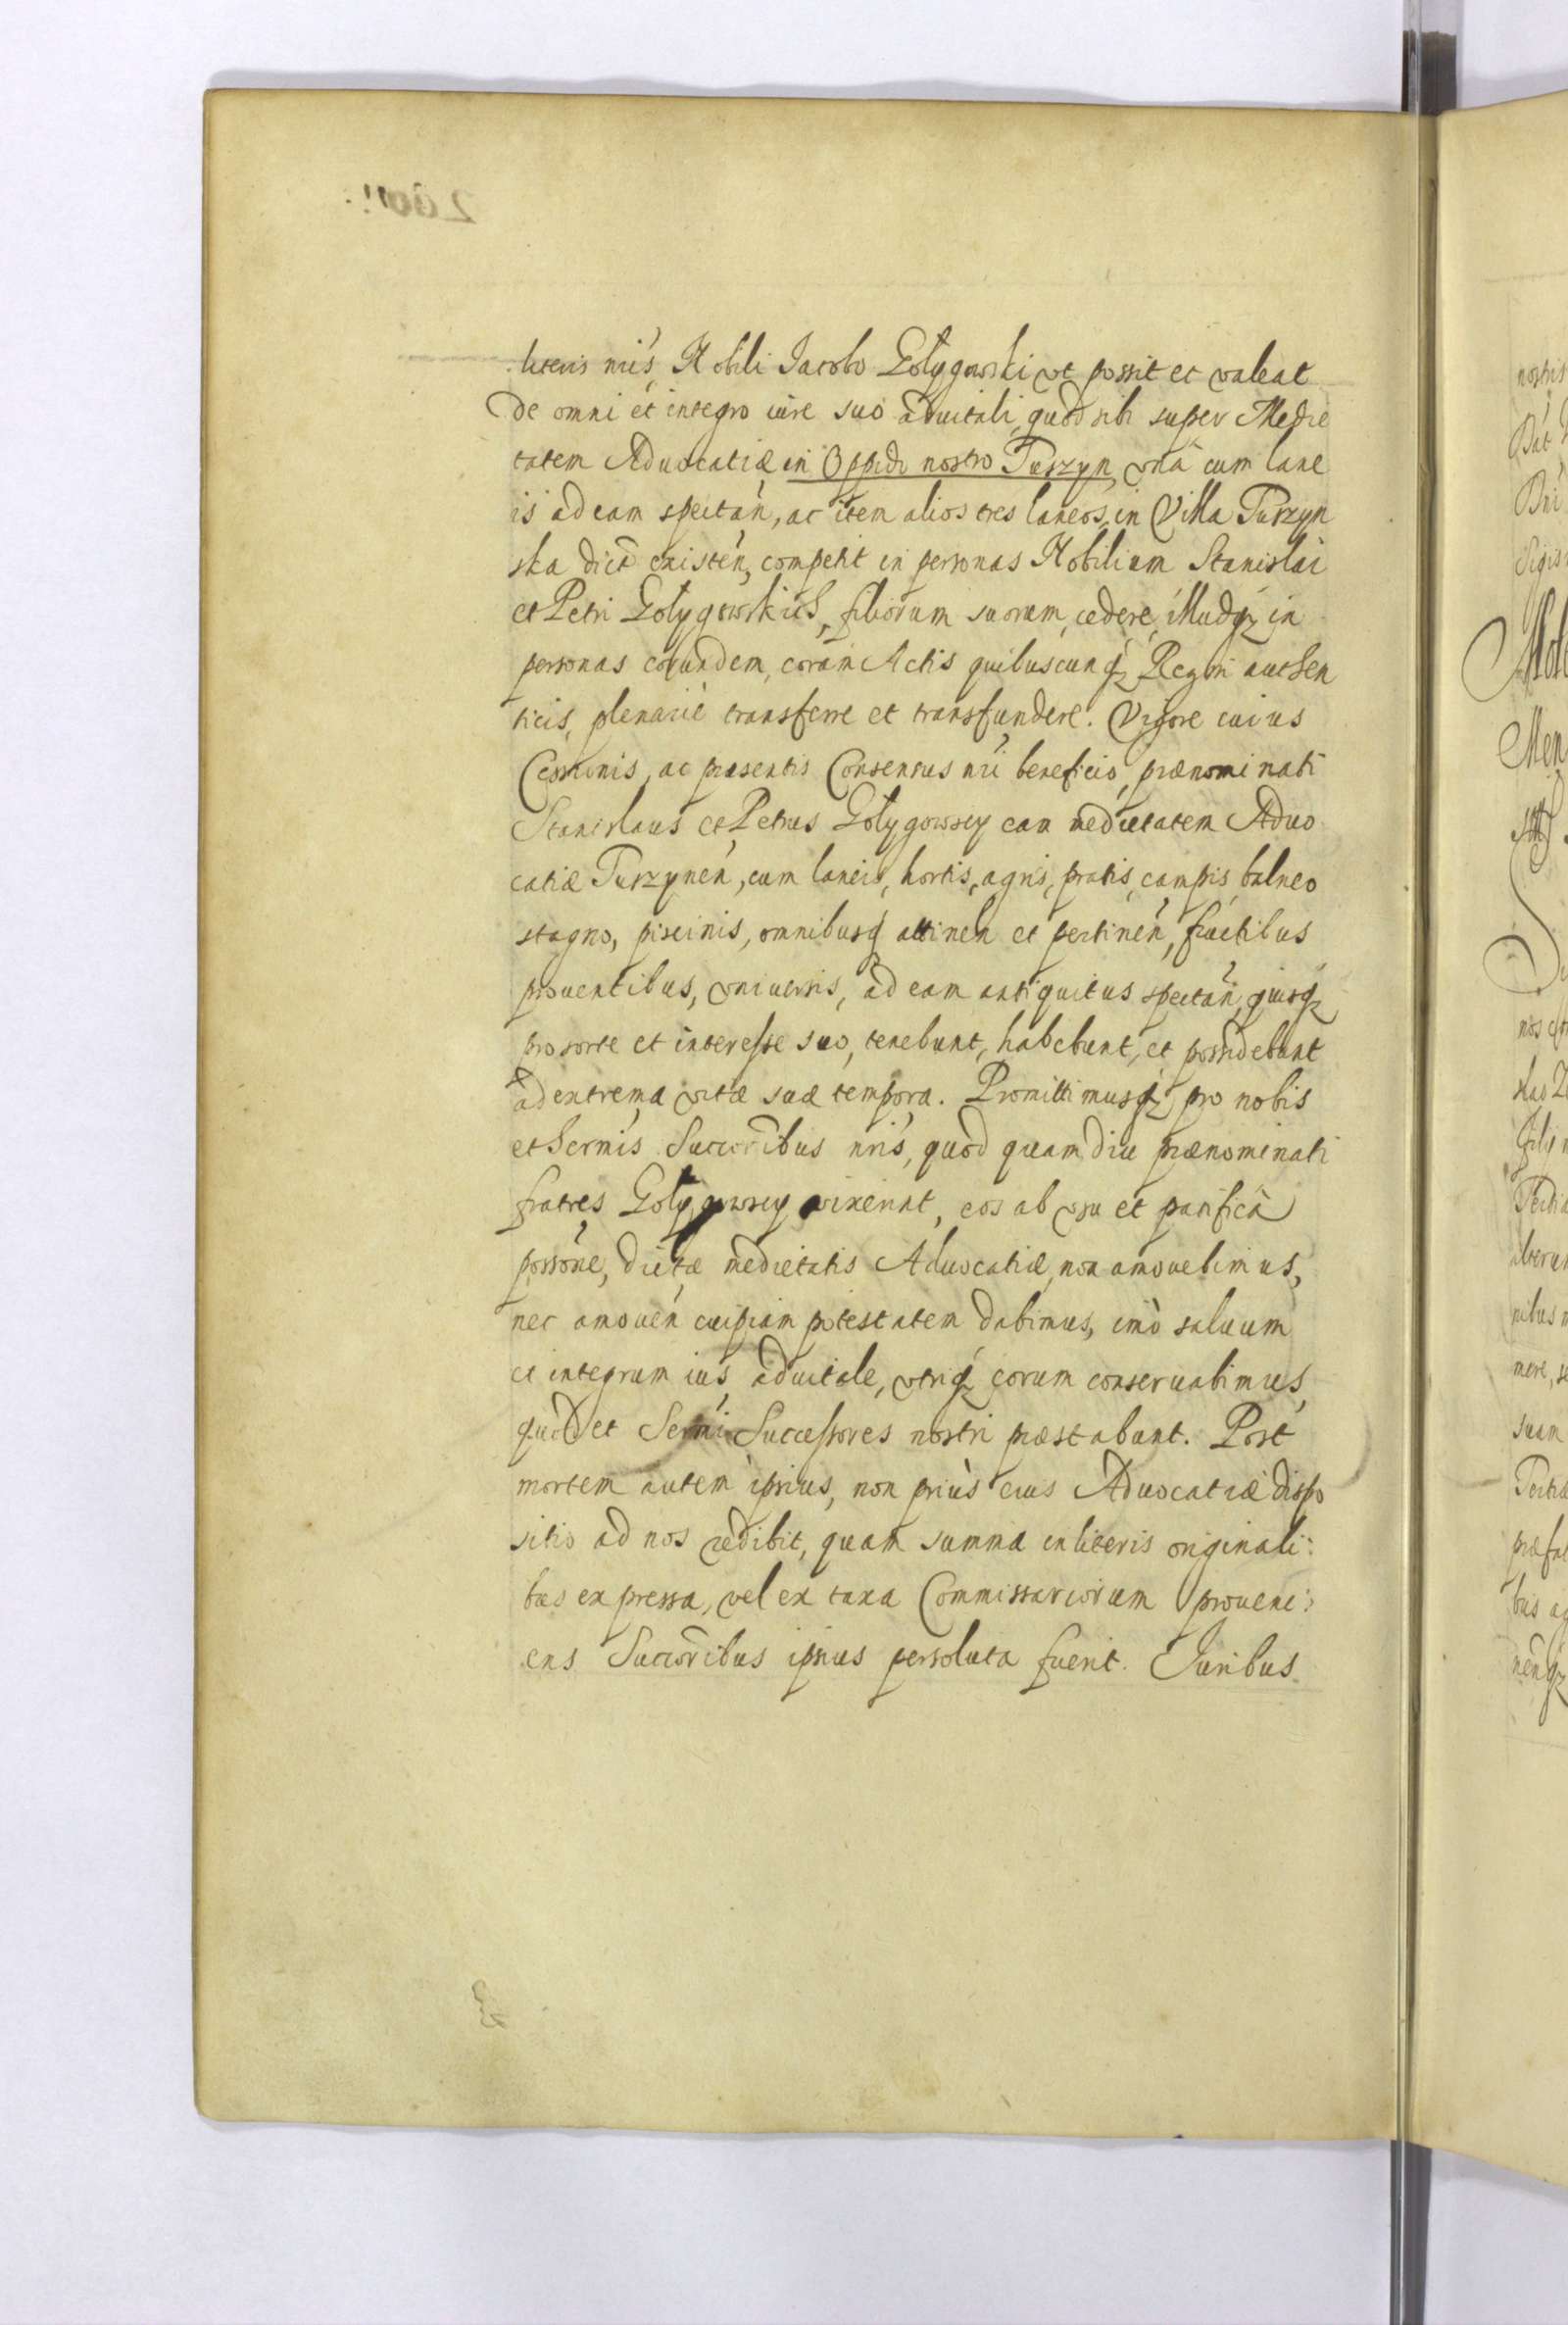 literis nris, Nobili Jacobo Gołygowski ut possit et valeat
de omni et integro iure suo aduitali, quod sibi super Medie
tatem Aduocatiæ in Oppido nostro Turzyn, vna cum lane
is ad eam spectan, ac item alios tres laneos, in Villa Turzyn
ska dict existen, competit in personas Nobilium Stanislai
et Petri Gołygowskich, filiorum suorum, cedere, illudq in
personas eorundem, coram Actis quibuscunq Regni authen
ticis, plenarie transferre et transfundere. Vigore cuius
Cessionis, ac præsentis Consensus nri beneficio, prænominati
Stanislaus et Petrus Gołygowscy eam medietatem Aduo
catiæ Turzynen, cum laneis, hortis, agris, pratis, campis, balneo
stagno, piscinis, omnibusq attinen et pertinen, fructibus
prouentibus, vniuersis, ad eam antiquitus spectan, quisq
pro sorte et interesse suo, tenebunt, habebunt, et possidebunt
ad extrema vitæ suæ tempora. Promittimusq pro nobis
et Sermis Succoribus nris, quod quamdiu prænominati
fratres Gołygowscy vixerint, eos ab vsu et pacifica
possone, dictæ medietatis Aduocatiæ, non amouebimus,
nec amouen cuipiam potestatem dabimus, imò saluum
et integrum ius aduitale, vtriq eorum conseruabimus,
quod et Sermi Successores nostri præstabunt. Post
mortem autem ipsius, non priùs eius Aduocatiæ dispo
sitio ad nos redibit, quam summa in literis originali:
bus expressa, vel ex taxa Commissariorum proueni:
ens Succoribus ipsius persoluta fuerit. Juribus